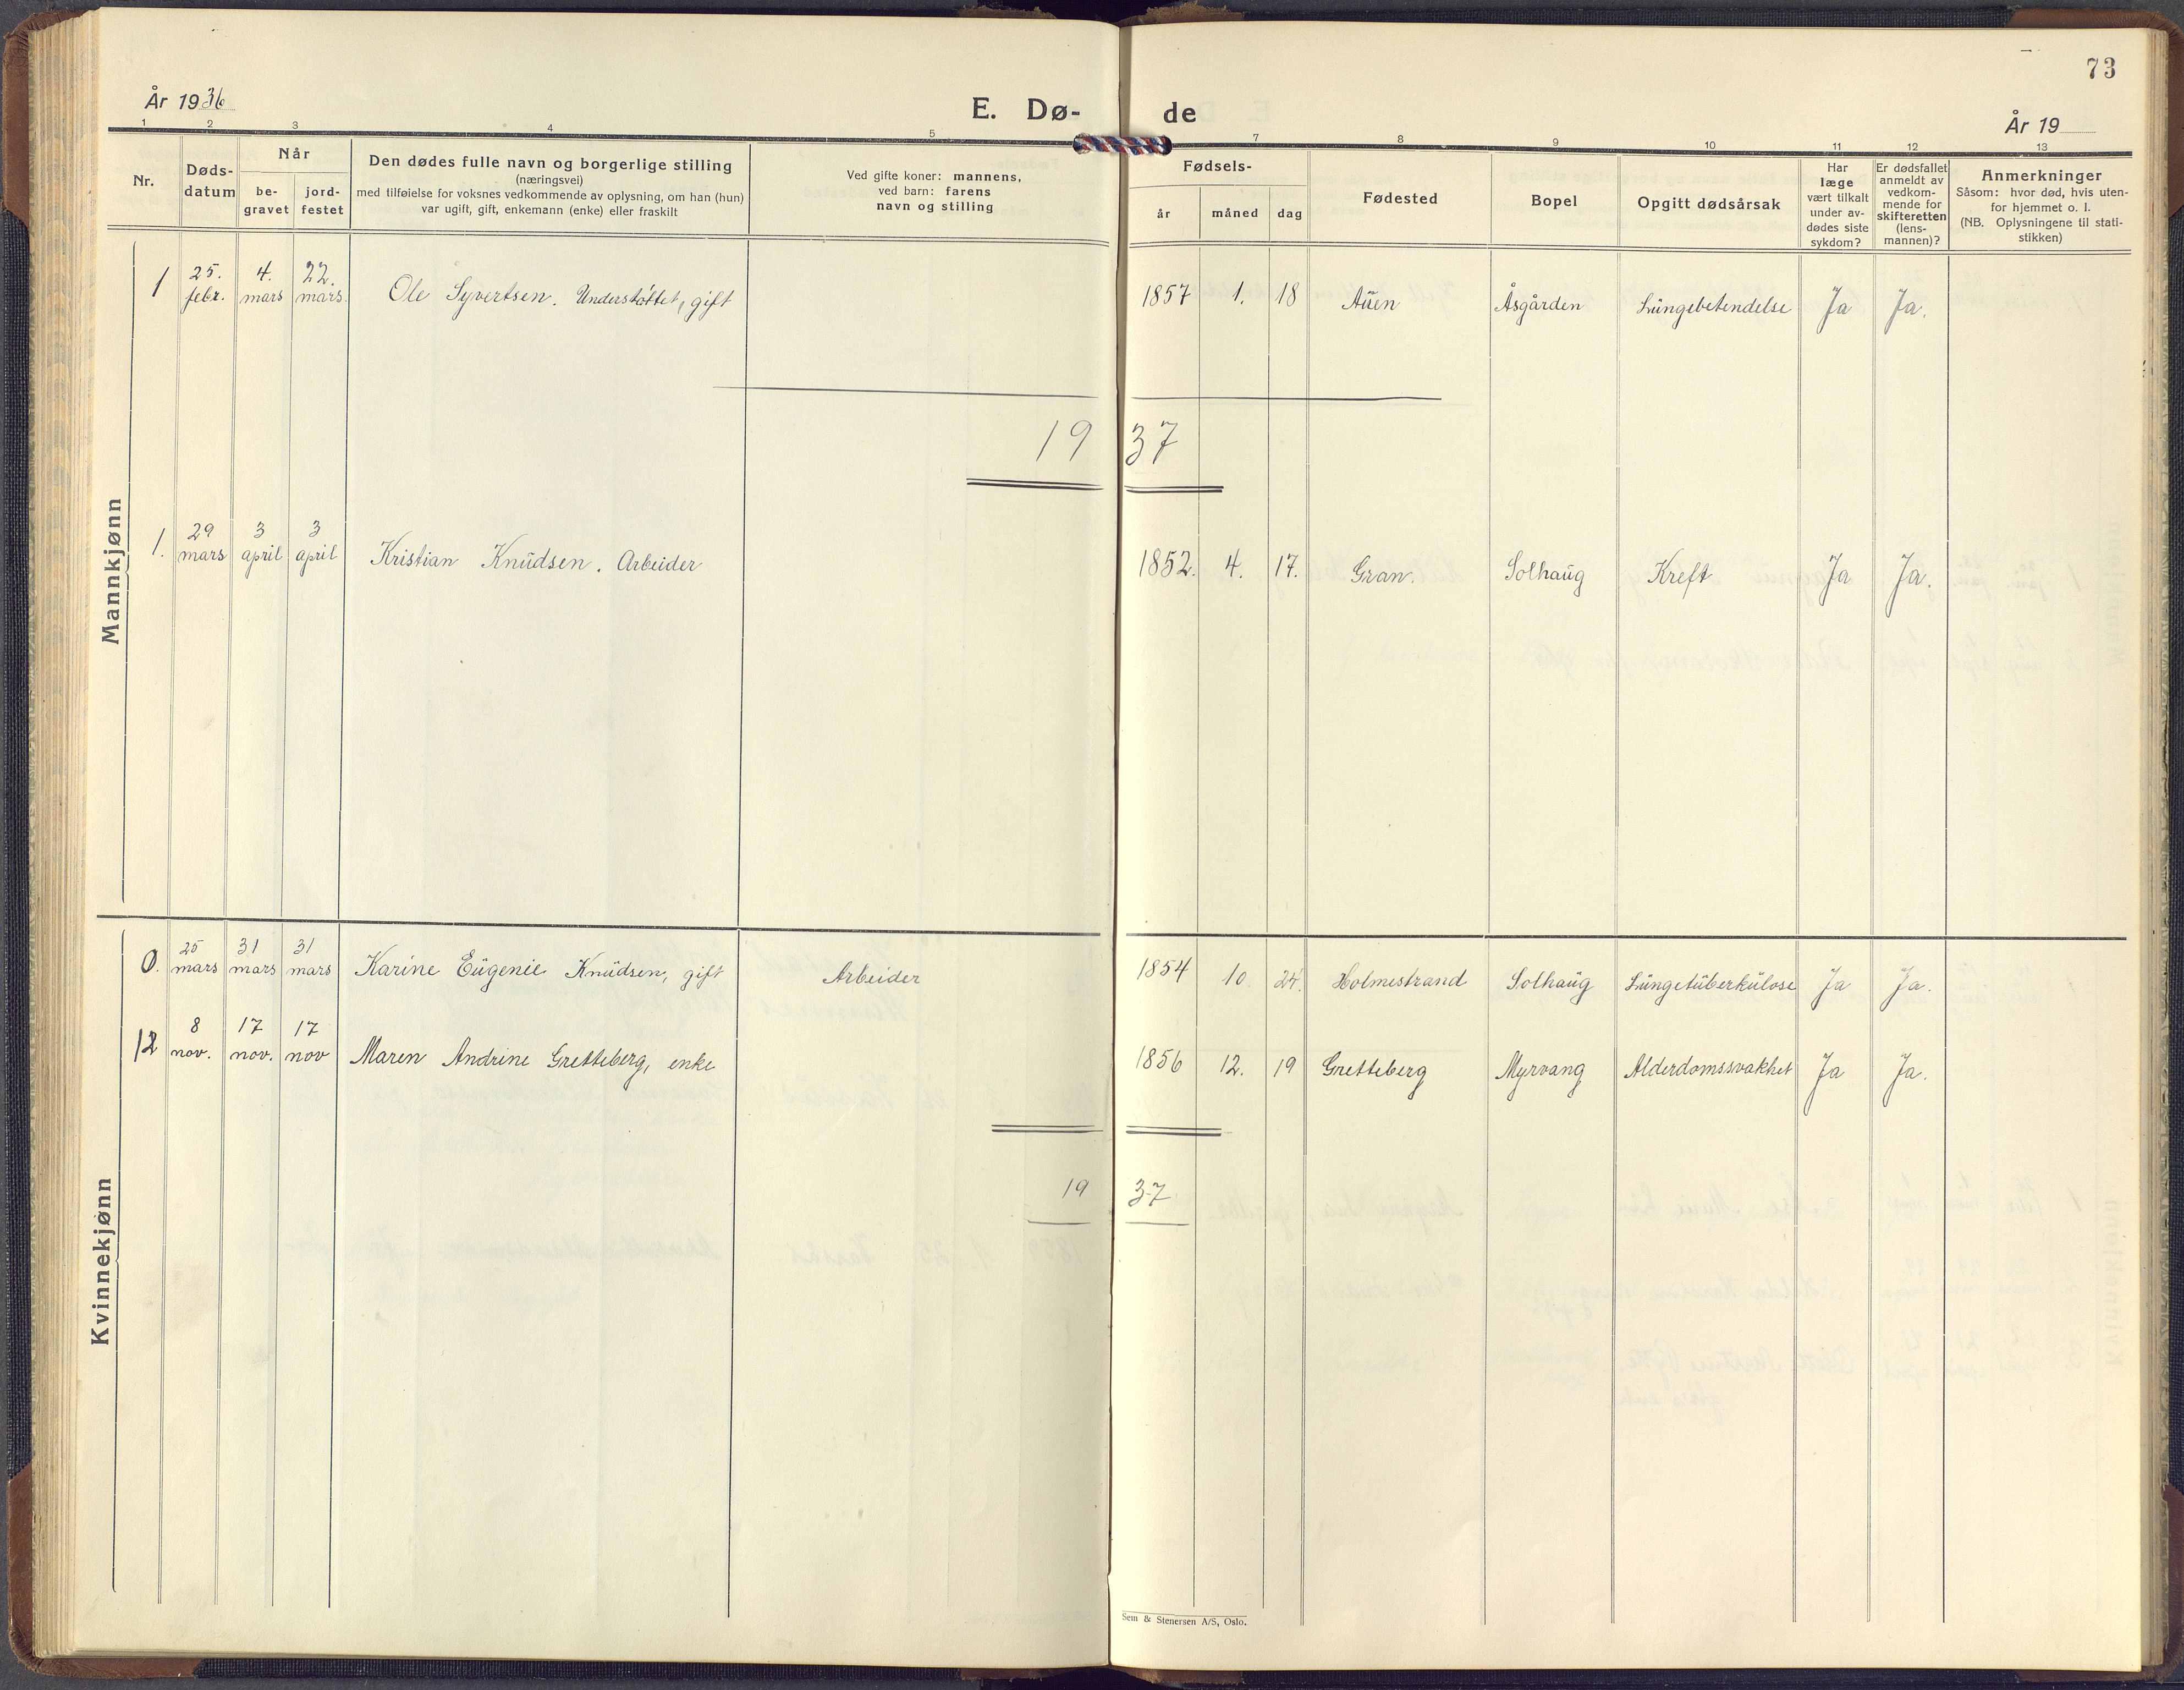 73
År 1936
E. Dø- de
År 19
1 2 3 4 5 7 8 9 10 11 12 13
Nr.
Døds-
datum
Når
be-
gravet
jord-
festet
Den dødes fulle navn og borgerlige stilling
(næringsvei)
med tilføielse for voksnes vedkommende av oplysning, om han (hun)
var ugift, gift, enkemann (enke) eller fraskilt
Ved gifte koner: mannens,
ved barn: farens
navn og stilling
Fødsels-
år måned dag
Fødested
Bopel
Opgitt dødsårsak
Har
læge
vært tilkalt
under av-
dødes siste
sykdom?
Er dødsfallet
anmeldt av
vedkom-
mende for
skifteretten
(lens-
mannen)?
Anmerkninger
Såsom: hvor død, hvis uten-
for hjemmet o. l.
(NB. Oplysningene til stati-
stikken)
Mannkjønn
25. 4. 22.
1 febr. mars mars. Ole Syvertsen. Understøttet, gift 1857 1. 18 Auen Åsgården Lungebetendelse Ja Ja.
19 37
29 3 3
1. mars april april Kristian Knudsen. Arbeider 1852. 4. 17. Gran. Solhaug Kreft Ja Ja.
Kvinnekjønn
25 31 31
0. mars mars mars Karine Eugenie Knudsen, gift Arbeider 1854 10. 24. Holmestrand Solhaug Lungetuberkulose Ja Ja.
8 17 17
12 nov. nov. nov Maren Andrine Gretteberg, enke 1856 12. 19 Gretteberg Myrvang Alderdomssvakhet Ja Ja.
19 37
Sem & Stenersen A/S, Oslo.